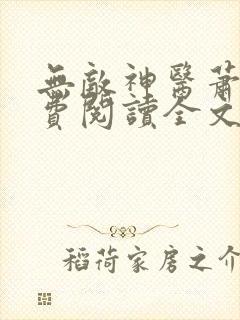 無敵神醫蕭
費閱讀全文
稻荷家房之介